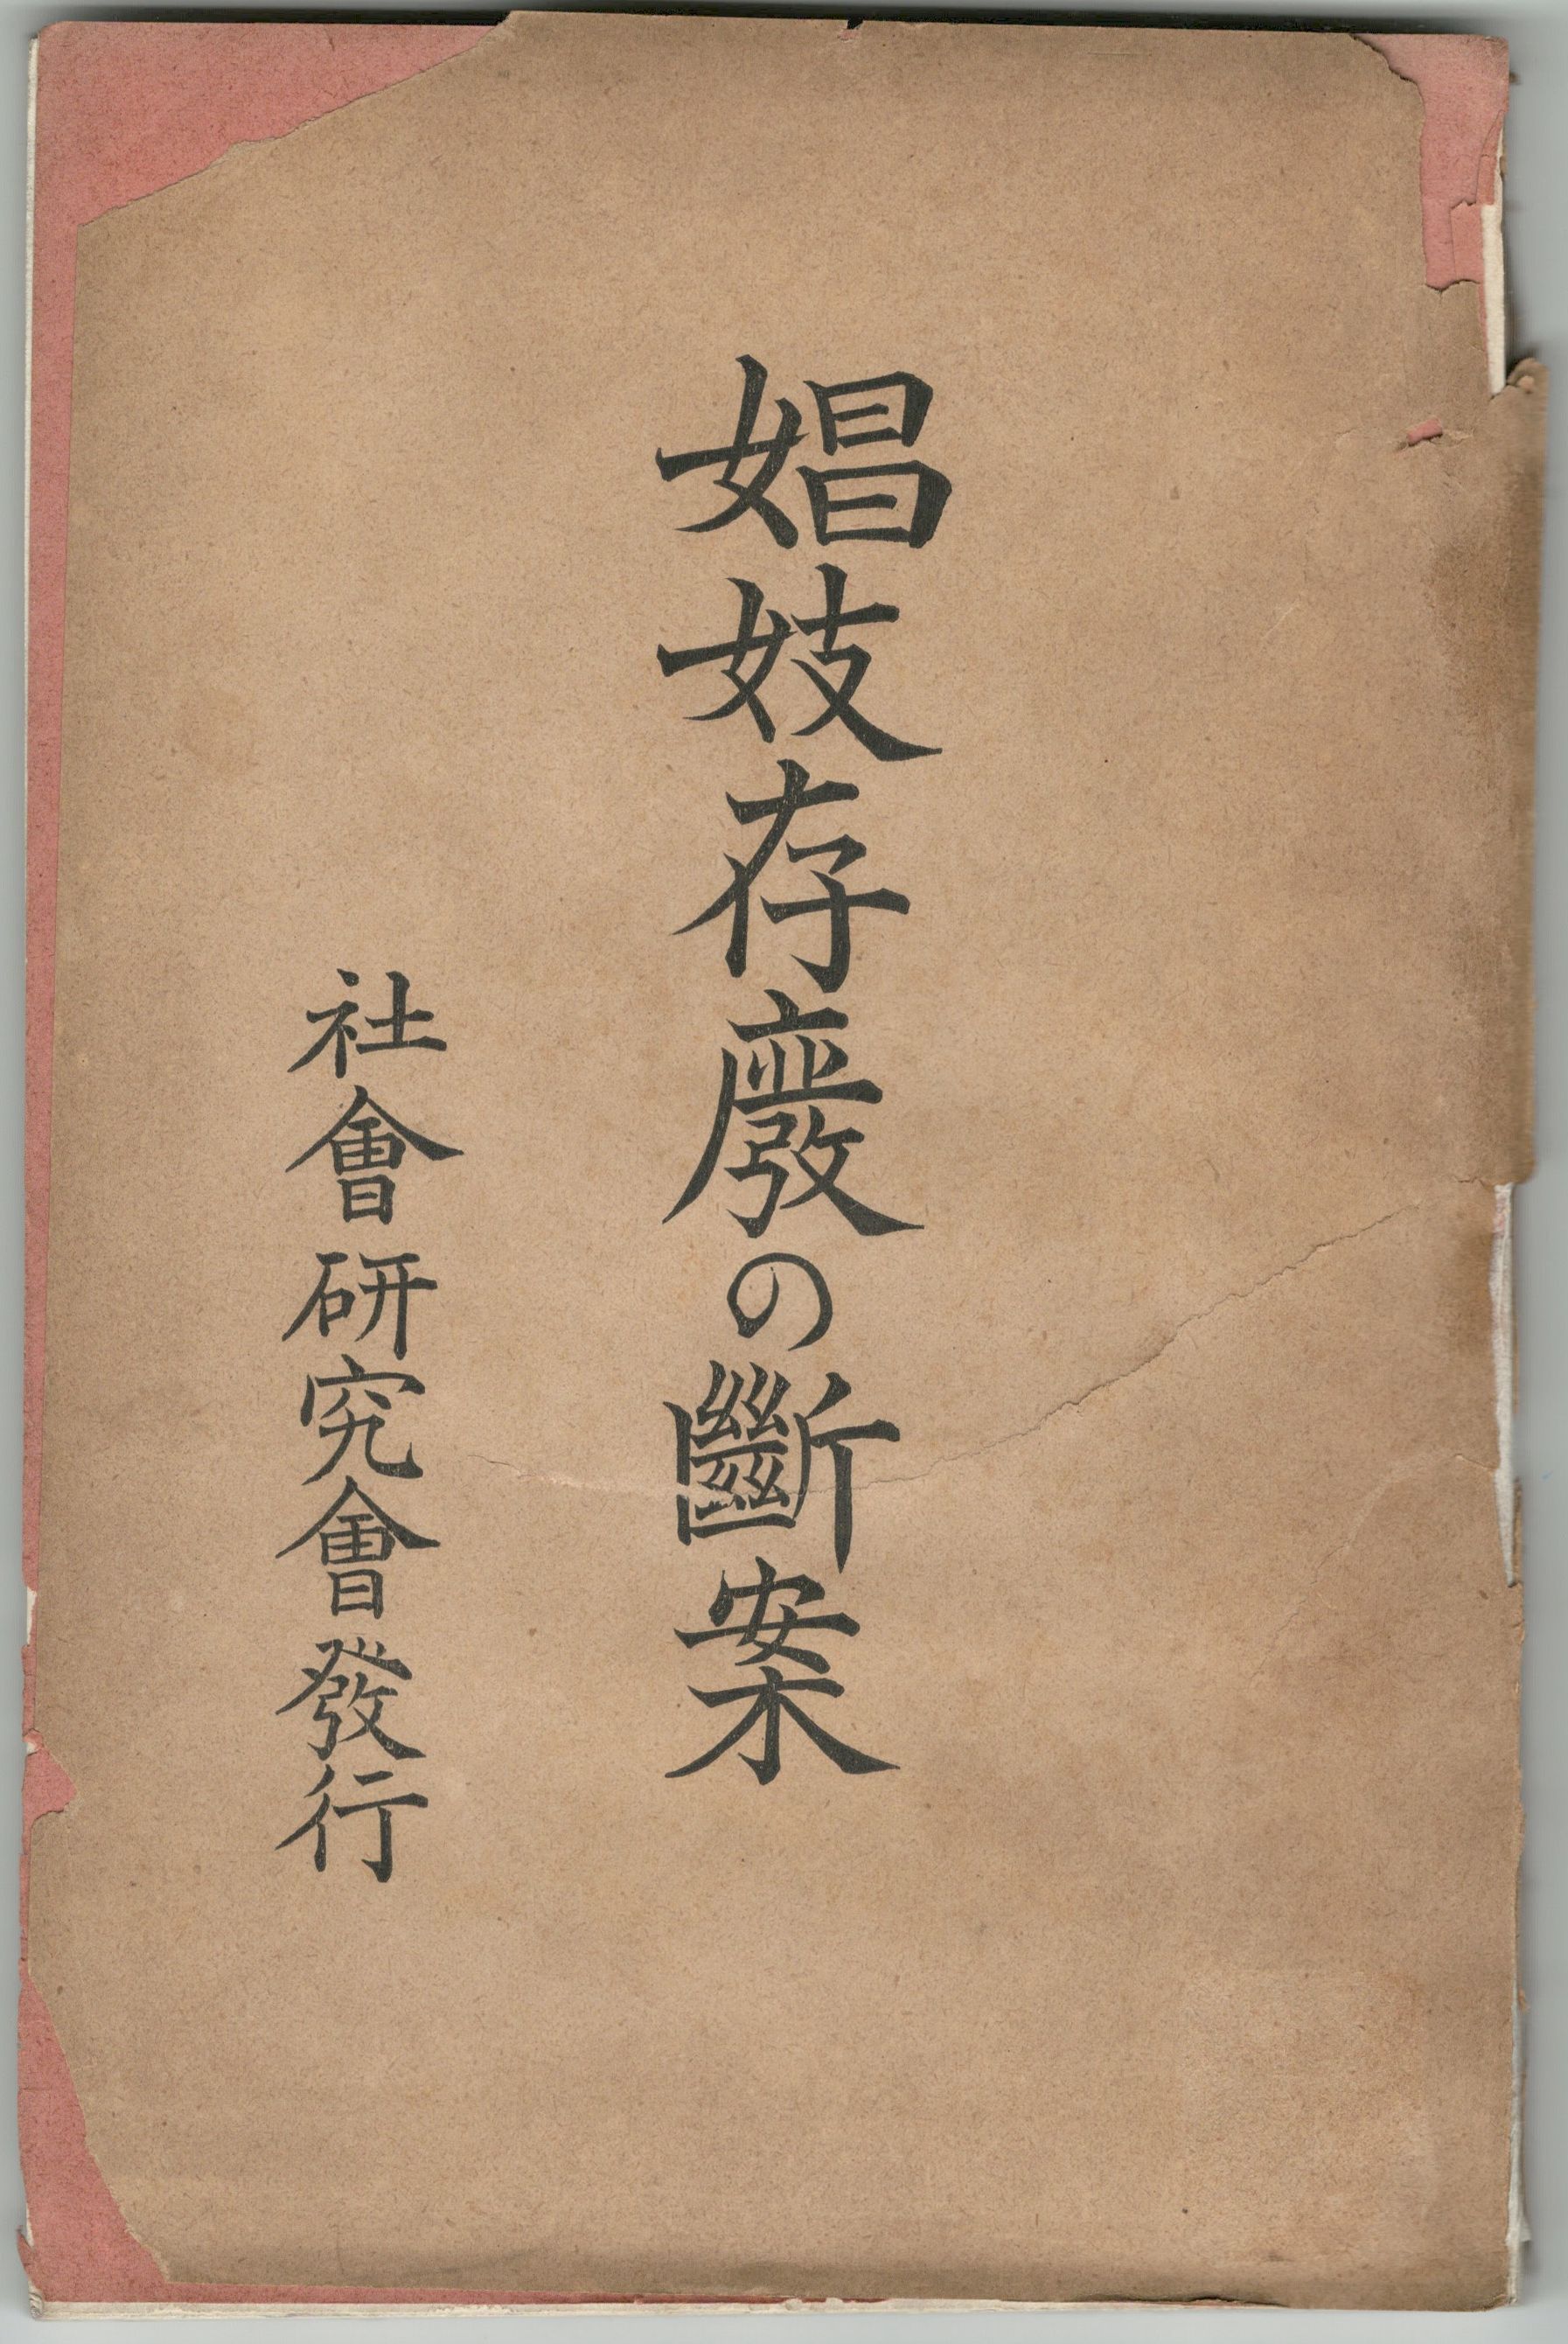 娼妓存廢の斷案
社會研究會發行